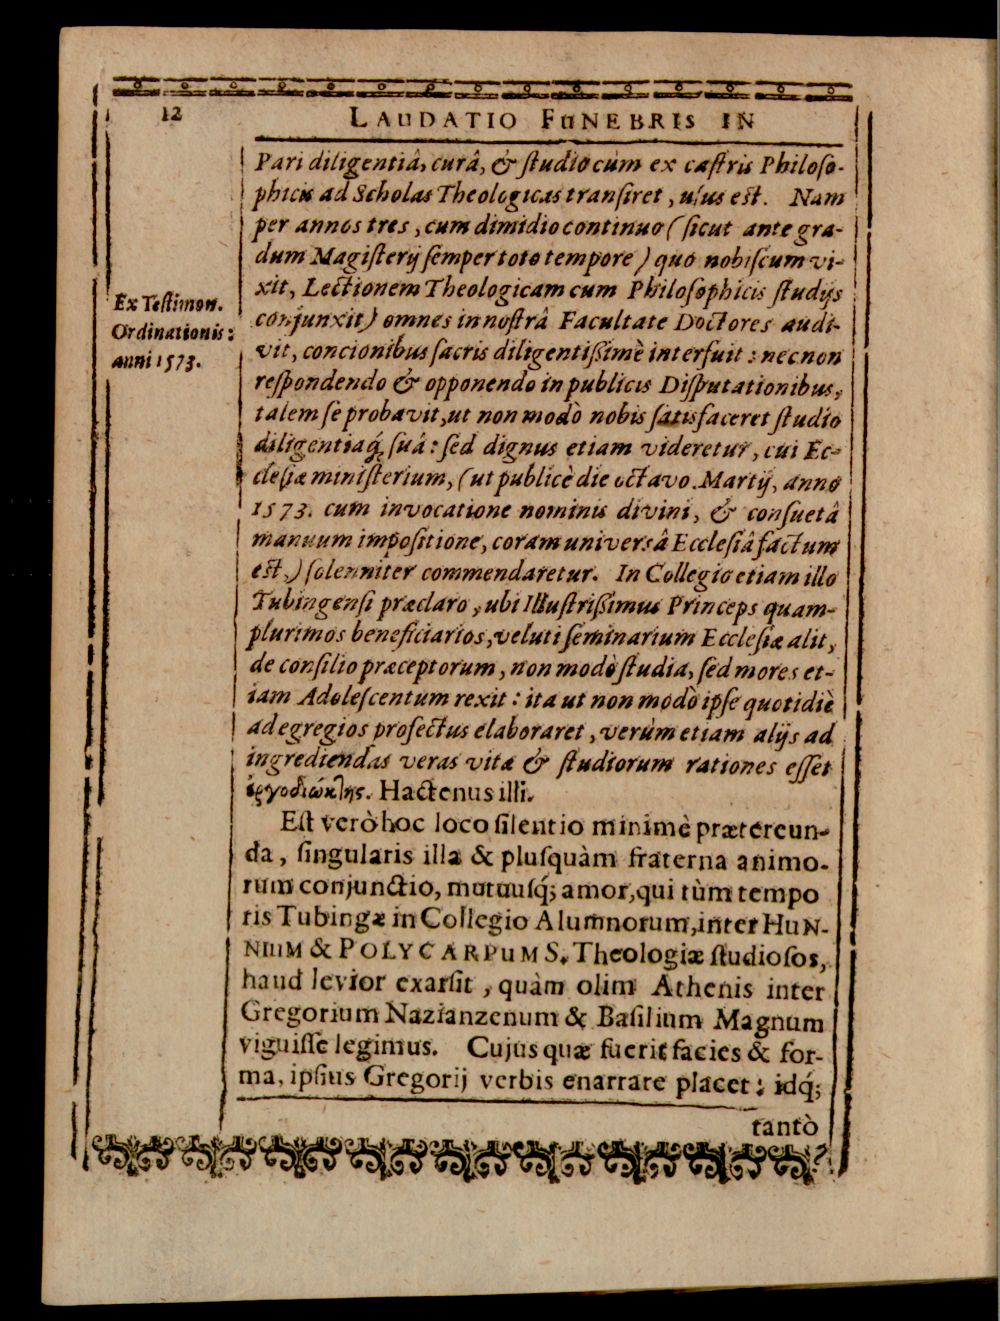 12
LAUDATIO FUNEBRIS IN
Pari diligentiâ, curâ, & ſtudio cùm ex caſtris Philoſo-
phicis ad Scholas Theologicas tranſiret, uſus eſt. Nam
per annos tres, cum dimidio continuo (ſicut ante gra-
dum Magiſterij ſemper toto tempore) quo nobiſcum vi-
xit, Lectionem Theologicam cum Philoſophicis ſtudijs
conjunxit) omnes in noſtrâ Facultate Doctores audi-
vit, concionibus ſacris diligentißimè interfuit: nec non
reſpondendo & opponendo in publicis Diſputationibus,
talem ſe probavit, ut non modò nobis ſatisfaceret ſtudio
diligentiaq́; ſuâ: ſed dignus etiam videretur, cui Ec-
cleſiæ miniſterium, (ut publicè die octavo. Martij, anno
1573. cum invocatione nominis divini, & conſuetâ
manuum impoſitione, coram universâ Eccleſiâ factum
eſt,) ſolenniter commendaretur. In Collegio etiam illo
Tubingenſi præclaro, ubi Illuſtrißimus Princeps quam-
plurimos beneficiarios, veluti ſeminarium Eccleſiæ alit,
de conſilio præceptorum, non modò ſtudia, ſed mores et-
iam Adoleſcentum rexit: ita ut non modò ipſe quotidiè
ad egregios profectus elaboraret, verùm etiam alijs ad
ingrediendas veras vitæ & ſtudiorum rationes eſſet
ἐργοδιώκτης. Hactenus illi.
Eſt verò hoc loco ſilentio minimè prætereun-
da, ſingularis illa & pluſquàm fraterna animo-
rum conjunctio, mutuusq́; amor, qui tùm tempo
ris Tubingæ in Collegio Alumnorum, inter HUN-
NIUM & POLYCARPUM S. Theologiæ ſtudioſos,
haud levior exarſit, quàm olim Athenis inter
Gregorium Nazianzenum & Baſilium Magnum
viguiſſe legimus. Cujus quæ fuerit facies & for-
ma, ipſius Gregorij verbis enarrare placet: idq́;
tantò
Ex Teſtimon.
Ordinationis:
anni 1573.